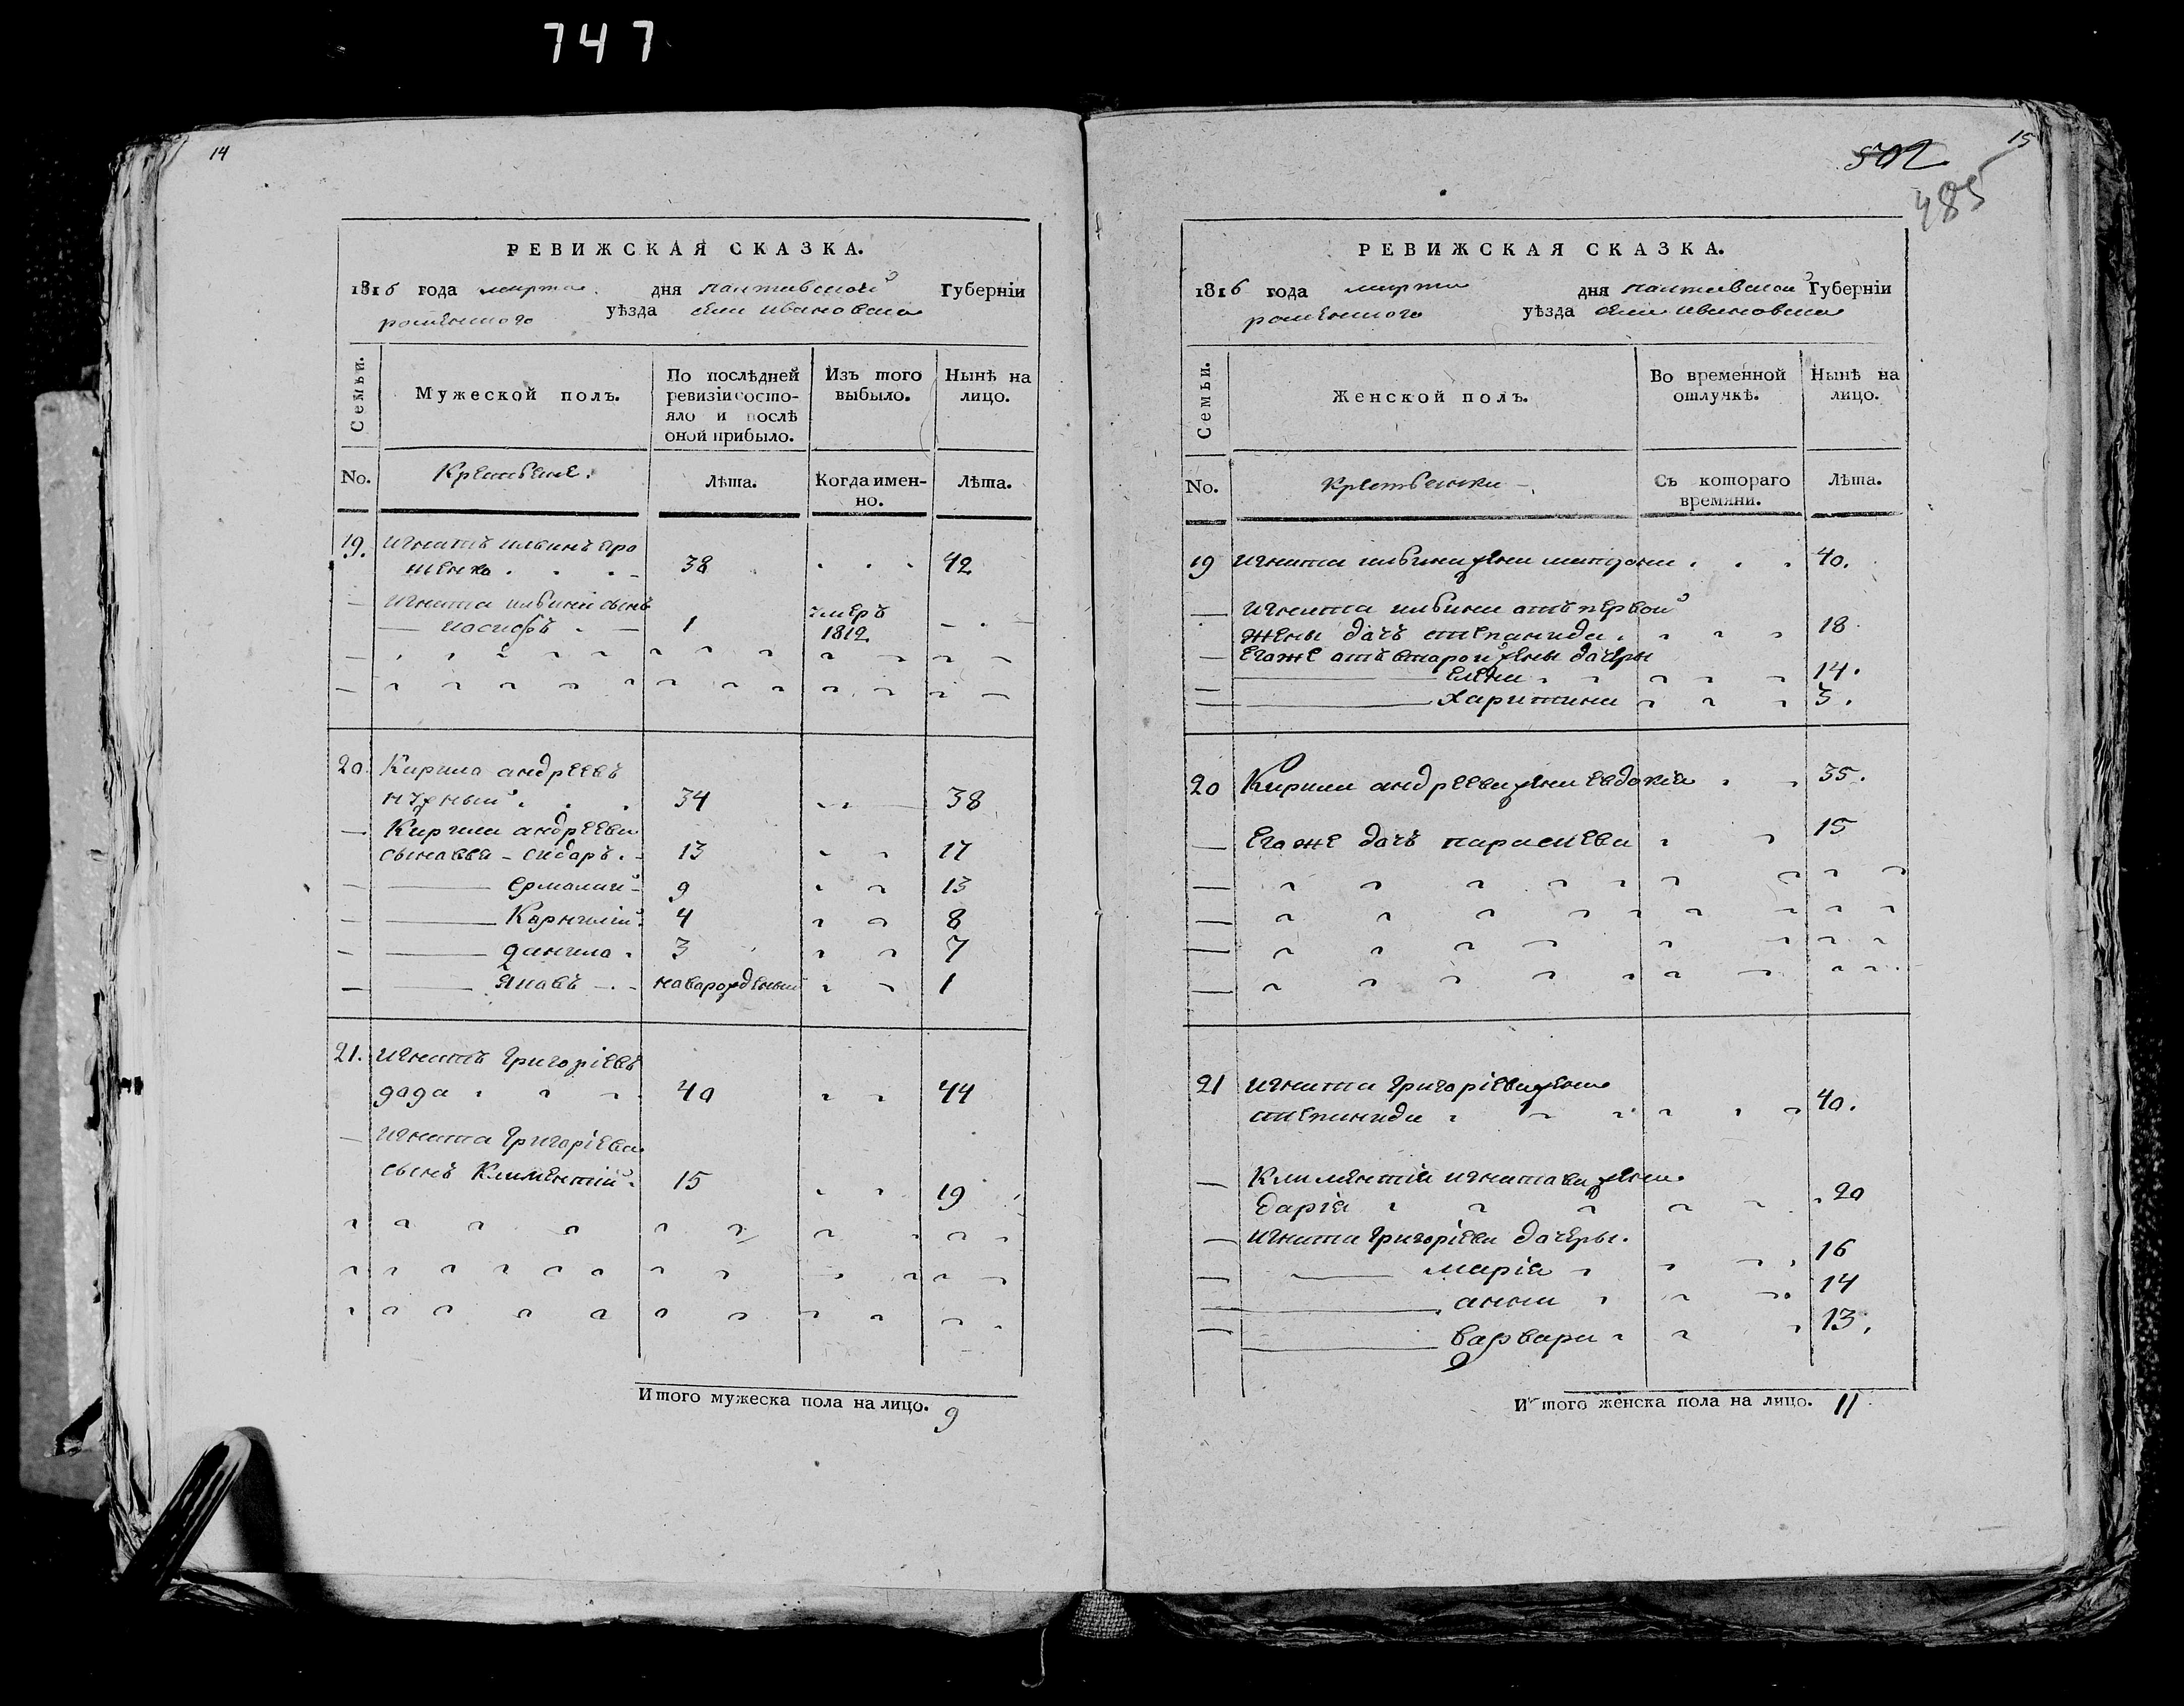 747
14
РЕВИЖСКАЯ СКАЗКА.
1816 года марта дня полтавской Губернїи
роменного уѣзда села ивановка
Семьи.
Мужеской полъ.
По послѣдней ревизїи состо-
яло и послѣ
оной прибыло.
Изъ того выбыло.
Нынѣ на лицо.
No.
Крестьяне.
Лѣта.
Когда имен-
но.
Лѣта.
19. Игнатъ ильинъ
38 42
Игната ильина сынъ
иосифъ 1 умеръ 1812
20. Кирило андреевъ
нужный 34 38
Кирила андреева
сыновья - сидоръ 13 17
ермолай 9 13
Корнилий 4 8
данило 3 7
Яковъ новорожденый 1
21. Игнатъ григорїевъ
дода 40 44
Игната григорїева
сынъ Климентий 15 19
Итого мужеска пола на лицо. 9
15
502
485
РЕВИЖСКАЯ СКАЗКА.
1816 года марта дня полтавской Губернїи
роменного уѣзда села ивановка
Семьи.
Женской полъ.
Во временной
отлучкѣ.
Нынѣ на
лицо.
No.
Крестьянки
Съ котораго
времяни.
Лѣта.
19 Игната ильина жена матрона 40.
Игната ильина отъ первой
жены дочь степанида 18
Егоже отъ второй жены дочеры
елена 14.
Харитина 3.
20 Кирила андреева жена евдокїя 35.
Егоже дочь параскева 15
21 Игната григорїева жена
степанида 40.
Климентїя игнатова жена
дарїя 20
Игната григорїева дочеры.
марїя 16
анна 14
варвара 13.
Итого женска пола на лицо. 11